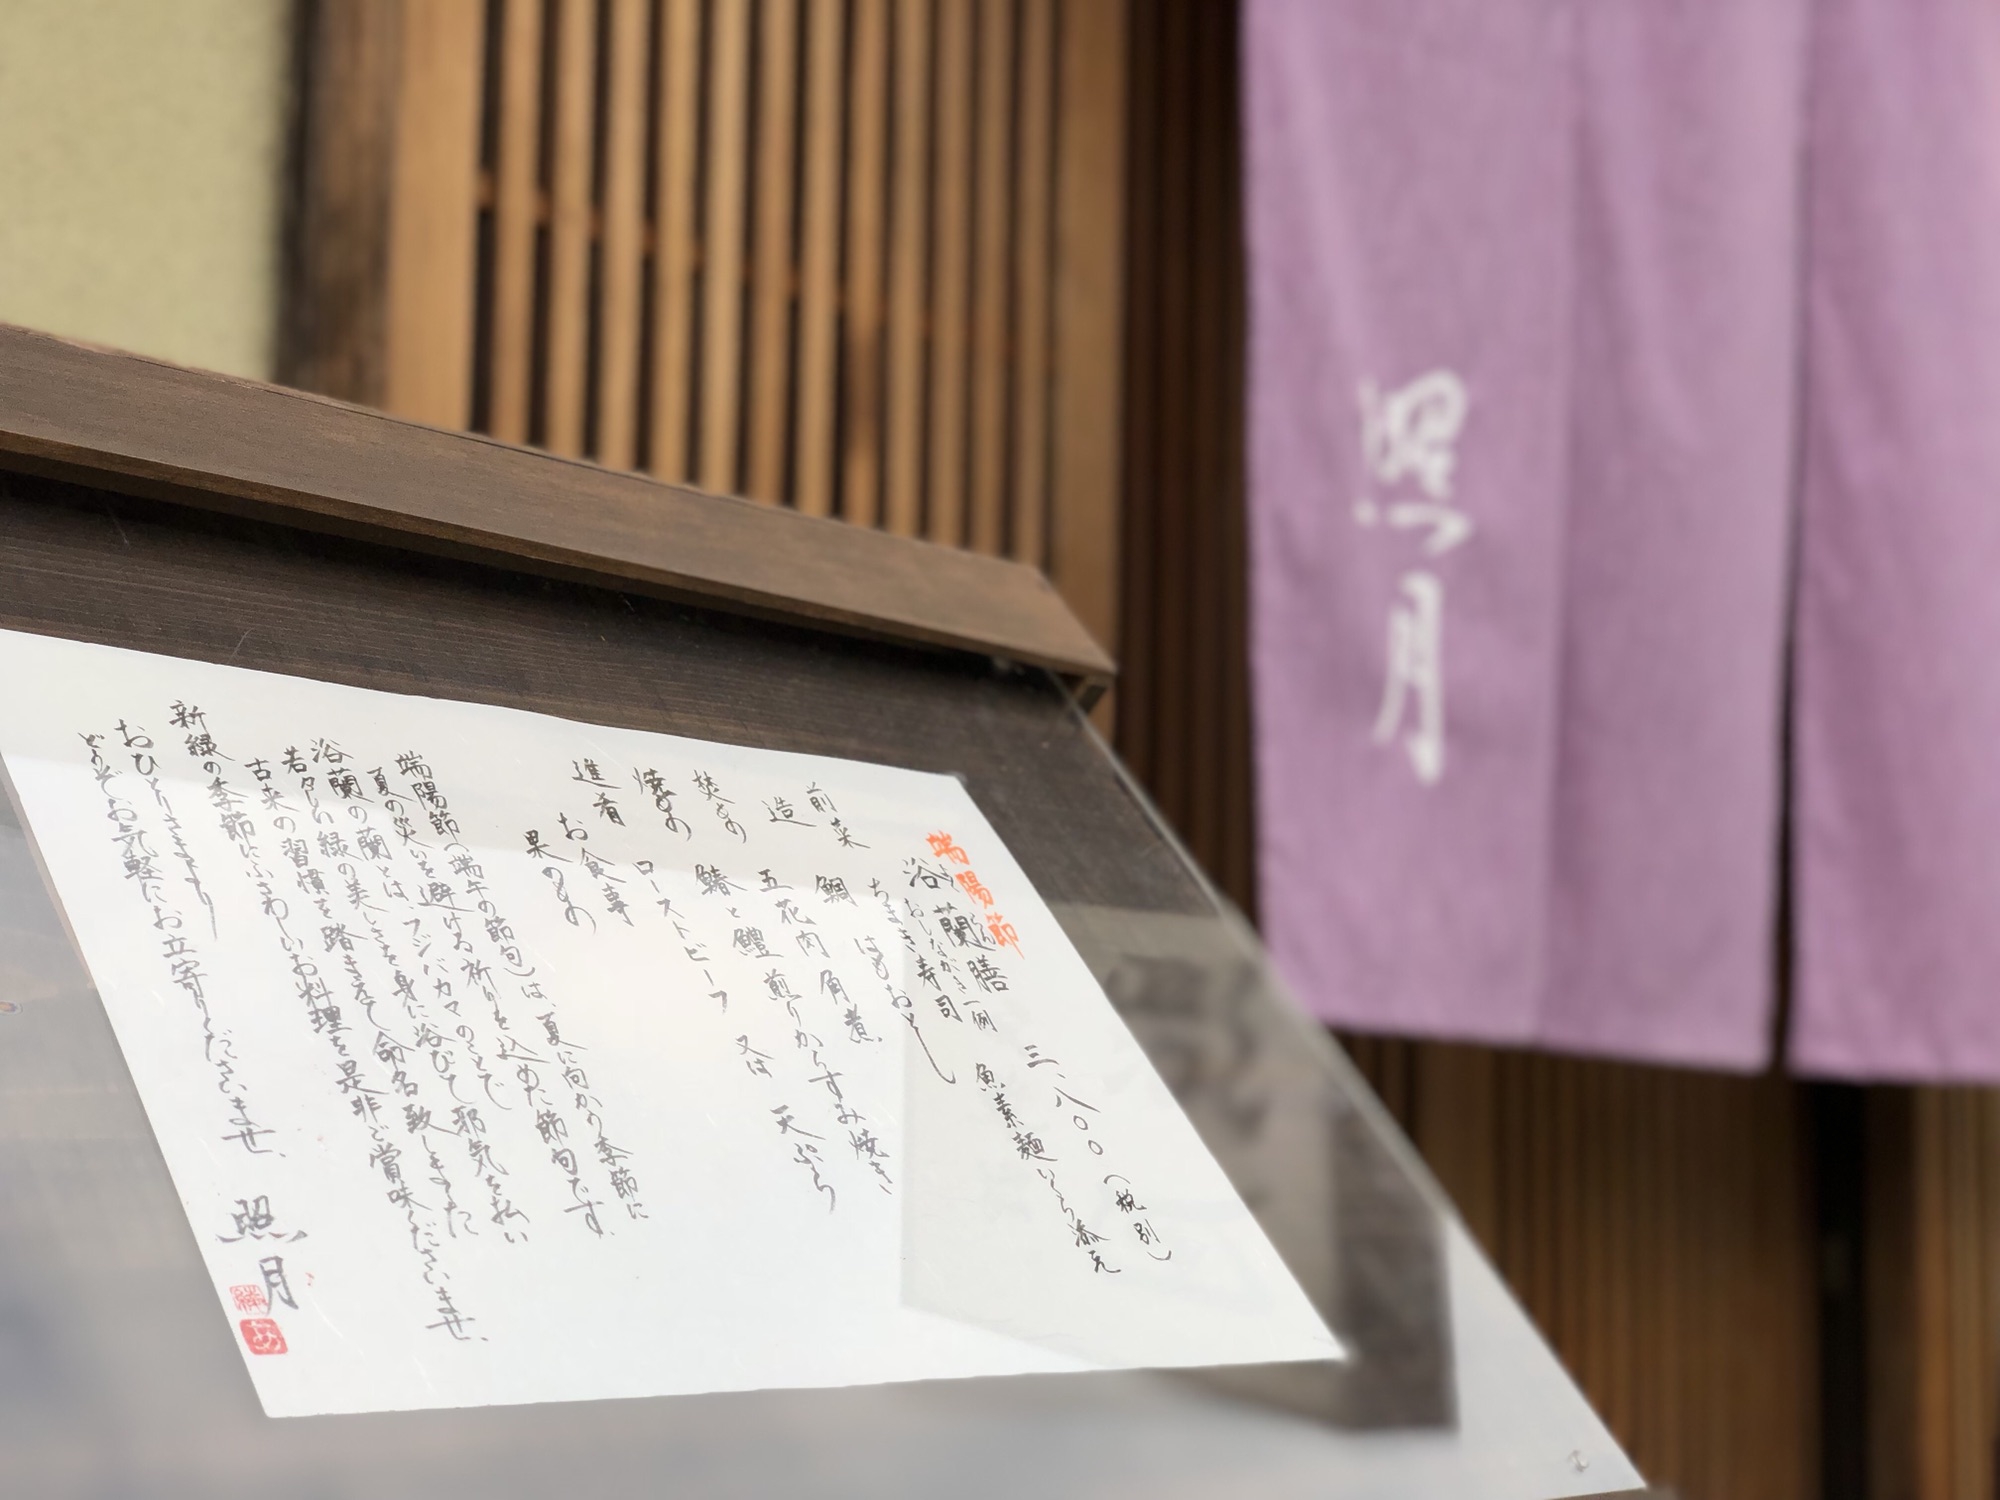 端陽節
浴蘭膳 三、八〇〇(税別)
よくらん
おしながき 一例
前菜 ちまき寿司 魚素麺いくら添え
造 鯛 はもおとし
焚もの 五花肉角煮
焼もの 鰆と鱧 煎りからすみ焼き
進肴 ローストビーフ 又は 天ぷら
お食事
果のもの
端陽節(端午の節句)は、夏に向かう季節に
夏の災いを避ける祈りを込めた節句です。
浴蘭の蘭とは、フジバカマのことで
若々しい緑の美しさを身に浴びて邪気を払い
古来の習慣を踏まえて命名致しました
新緑の季節にふさわしいお料理を是非ご賞味くださいませ。
おひとりさまより
どうぞお気軽にお立寄りくださいませ。
照月
照月